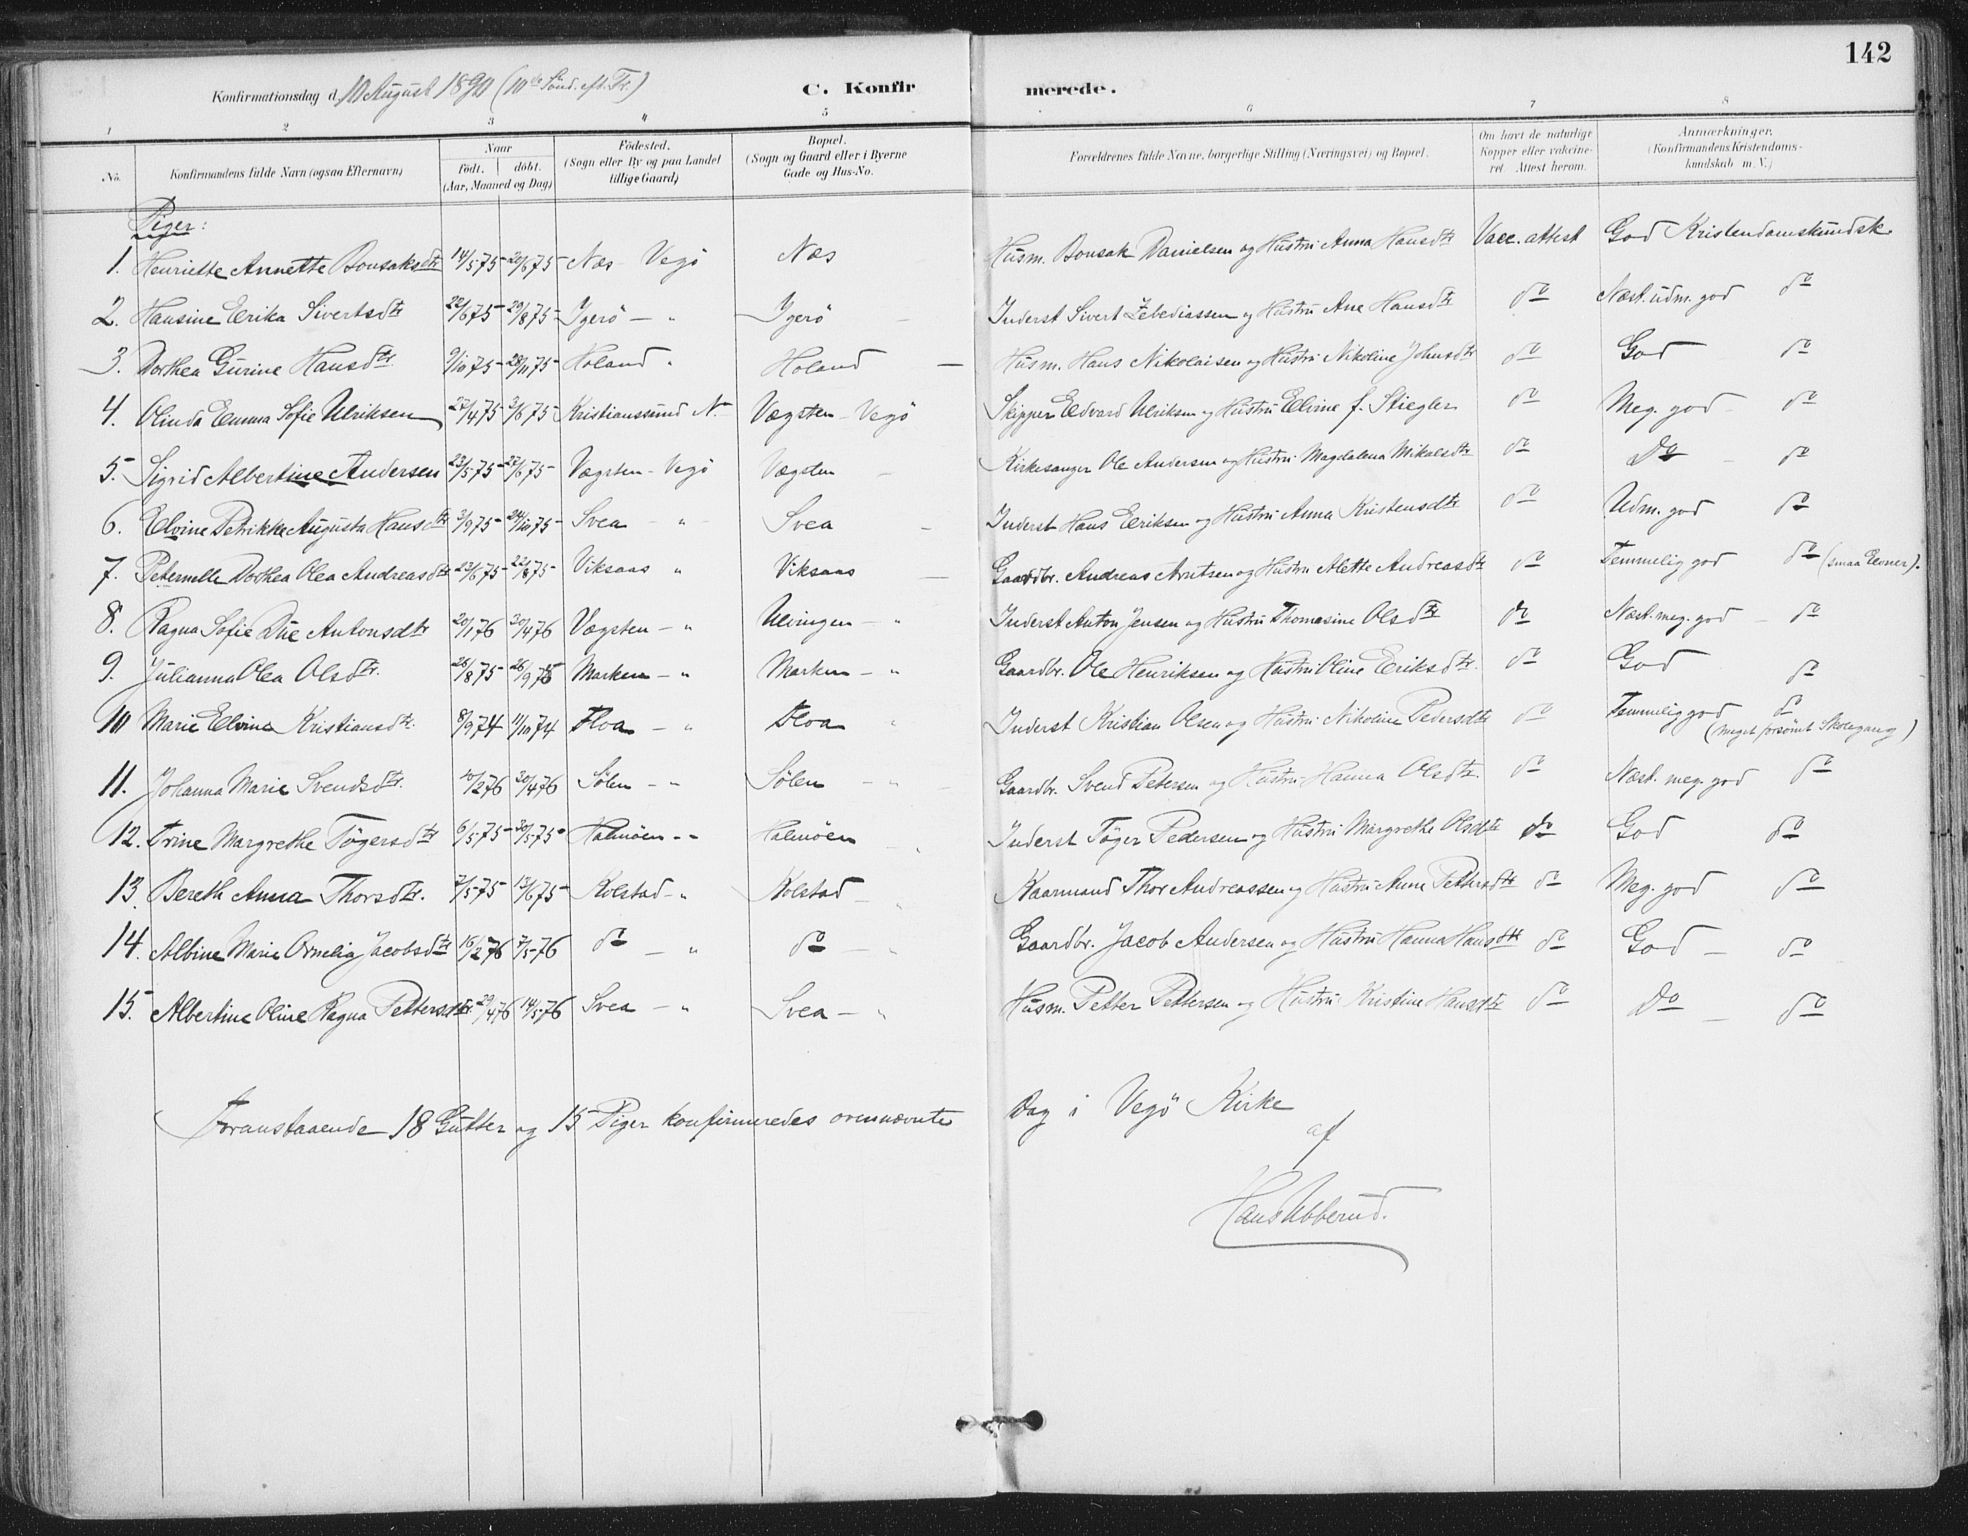 142
Konfirmationsdag d. 10 August 1890 (10de Sönd. eft. Tr.) C. Konfirmerede.
1 2 3 4 5 6 7 8
No. Konfirmandens fulde Navn (ogsaa Efternavn) Naar födt. döbt. (Aar, Maaned og Dag) Födested. (Sogn eller By og paa Landet tillige Gaard) Bopæl. (Sogn og Gaard eller i Byerne Gade og Hus-No. Forældrenes fulde Navne, borgerlige Stilling (Næringsvei) og Bopæl. Om havt de naturlige Kopper eller vakcineret. Attest herom. Anmærkninger. (Konfirmandens Kristendomskundskab m. V.)
Piger:
1. Henriette Annette Bonsaksdtr 14/5 75 20/6 75 Næs - Vegö Næs Husm. Bonsak Danielsen og Hustru Anna Hansdtr Vacc. attest God Kristendomskundsk.
2. Hansine Erika Sivertsdtr 22/6 75 29/8 75 Ygerö - " Ygerö - Inderst Sivert Zebediassen og Hustru Ane Hansdtr do Næst. udm. god do
3. Dorthea Gurine Hansdtr. 9/10 75 28/11 75 Holand " Holand - Husm. Hans Nikolaisen og Hustru Nikoline Johnsdtr do God do
4. Olinda Emma Sofie Ulriksen 27/4 75 3/6 75 Kristianssund N. Vægsten - Vegö Skipper Edvard Ulriksen og Hustru Elvine f. Stiegler do Meg. god - do
5. Sigrid Albertine Andersen 23/5 75 27/6 75 Vægsten - Vegö Vægsten - Kirkesanger Ole Andersen og Hustru Magdalena Mikalsdtr do Do - do
6. Elvine Petrikke Augusta Hansdtr 3/9 75 24/10 75 Svea - " Svea - Inderst Hans Eriksen og Hustru Anna Kristensdtr do Udm. god do
7. Peternelle Dorthea Olea Andreasdtr 23/6 75 22/8 75 Viksaas " Viksaas - Gaardbr. Andreas Arntsen og Hustru Alette Andreasdtr do Temmelig god do (smaa Evner).
8. Ragna Sofie Due Antonsdtr 20/1 76 30/4 76 Vægsten - " Ulvingen - " Inderst Anton Jensen og Hustru Thomasine Olsdtr do Næst. meg. god - do
9. Julianna Olea Olsdtr. 26/8 75 26/9 75 Marken - " Marken - " Gaardbr. Ole Henriksen og Hustru Oline Eriksdtr. do God do
10 Marie Elvine Kristiansdtr. 8/9 74 11/10 74 Floa - " Floa " Inderst Kristian Olsen og Hustru Nikoline Pedersdtr do Temmelig god do
(meget forsömt Skolegang)
11. Johanna Marie Svendsdtr. 10/2 76 30/4 76 Sølen - " Sølen - " Gaardbr. Svend Petersen og Hustru Hanna Olsdtr. do Næst. meg. god do
12. Trine Margrethe Tögersdtr 6/5 75 30/5 75 Halmöen - " Halmöen " Inderst Töger Pedersen og Hustru Margrethe Olsdtr do God do
13. Bereth Anna Thorsdtr. 7/5 75 13/6 75 Kolstad - " Kolstad " Kaarmand Thor Andreassen og Hustru Anne Pettersdtr do Meg. god do
14. Albine Marie Ornelia Jacobsdtr 16/2 76 7/5 76 do - " do - " Gaardbr. Jacob Andersen og Hustru Hanna Hansdtr do God - do
15. Albertine Oline Ragna Pettersdtr. 29/4 76 14/5 76 Svea - " Svea - " Husm. Petter Pettersen og Hustru Kristine Hansdtr do Do - do
Foranstaaende 18 Gutter og 15 Piger konfirmeredes ovennævnte Dag i Vegö Kirke
af
Hans Ubberud.